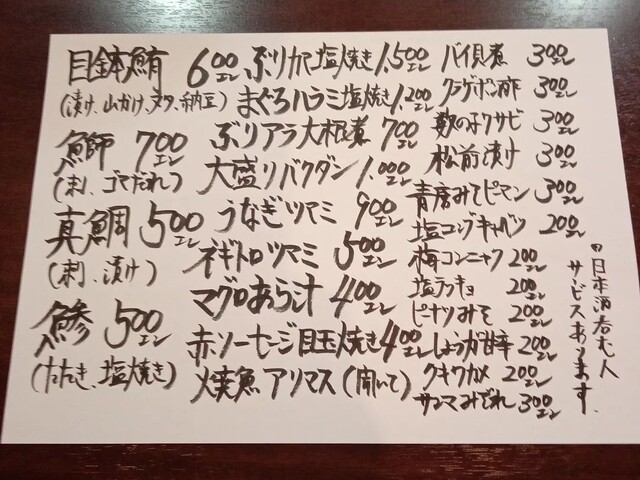 目鉢鮪 600エン
(漬け、山かけ、ヌタ、納豆)
鰤 700エン
(刺、ゴマだれ)
真鯛 500エン
(刺、漬け)
鯵 500エン
(たたき、塩焼き)
ぶりカマ塩焼き 1,500エン
まぐろハラミ塩焼き 1,200エン
ぶりアラ大根煮 700エン
大盛りバクダン 1,000エン
うなぎツマミ 900エン
ネギトロツマミ 500エン
マグロあら汁 400エン
赤ソーセージ目玉焼き 400エン
焼魚アリマス(聞いて)
バイ貝煮 300エン
クラゲポン酢 300エン
数の子ワサビ 300エン
松前漬け 300エン
青唐みそピーマン 300エン
塩コンブキャベツ 200エン
梅コンニャク 200エン
塩ラッキョ 200エン
ピーナツみそ 200エン
しょうが甘辛 200エン
クキワカメ 200エン
サンマみぞれ 300エン
日本酒呑む人
サービスあります。